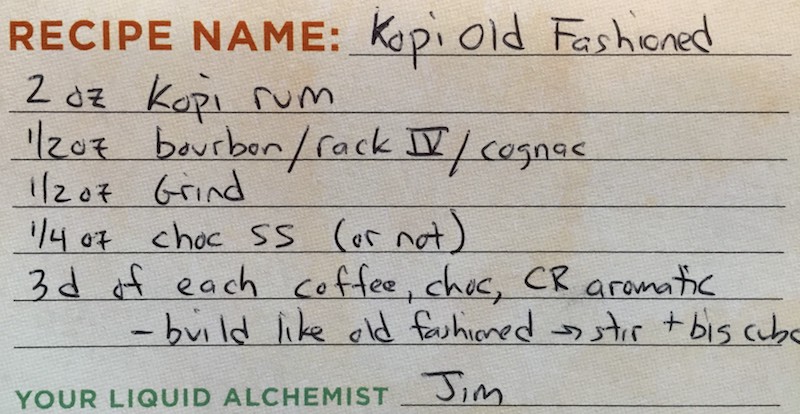 RECIPE NAME: Kopi Old Fashioned
2 oz Kopi rum
1/2 oz bourbon/rack IV/cognac
1/2 oz Grind
1/4 oz choc SS (or not)
3 d of each coffee, choc, CR aromatic
- build like old fashioned → stir + big cube
YOUR LIQUID ALCHEMIST Jim